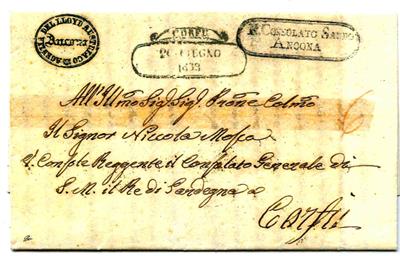 AGENZIA DEL LLOYD AUSTRIACO
Ancona
CORFU
20 GIUGNO
R. CONSOLATO SARDO
ANCONA
All' Illmo Sigr Sigr Prone Colmo
Il Signor Niccola Mosca
V. Console Reggente il Consolato Generale di
S. M. il Re di Sardegna a
Corfù
6